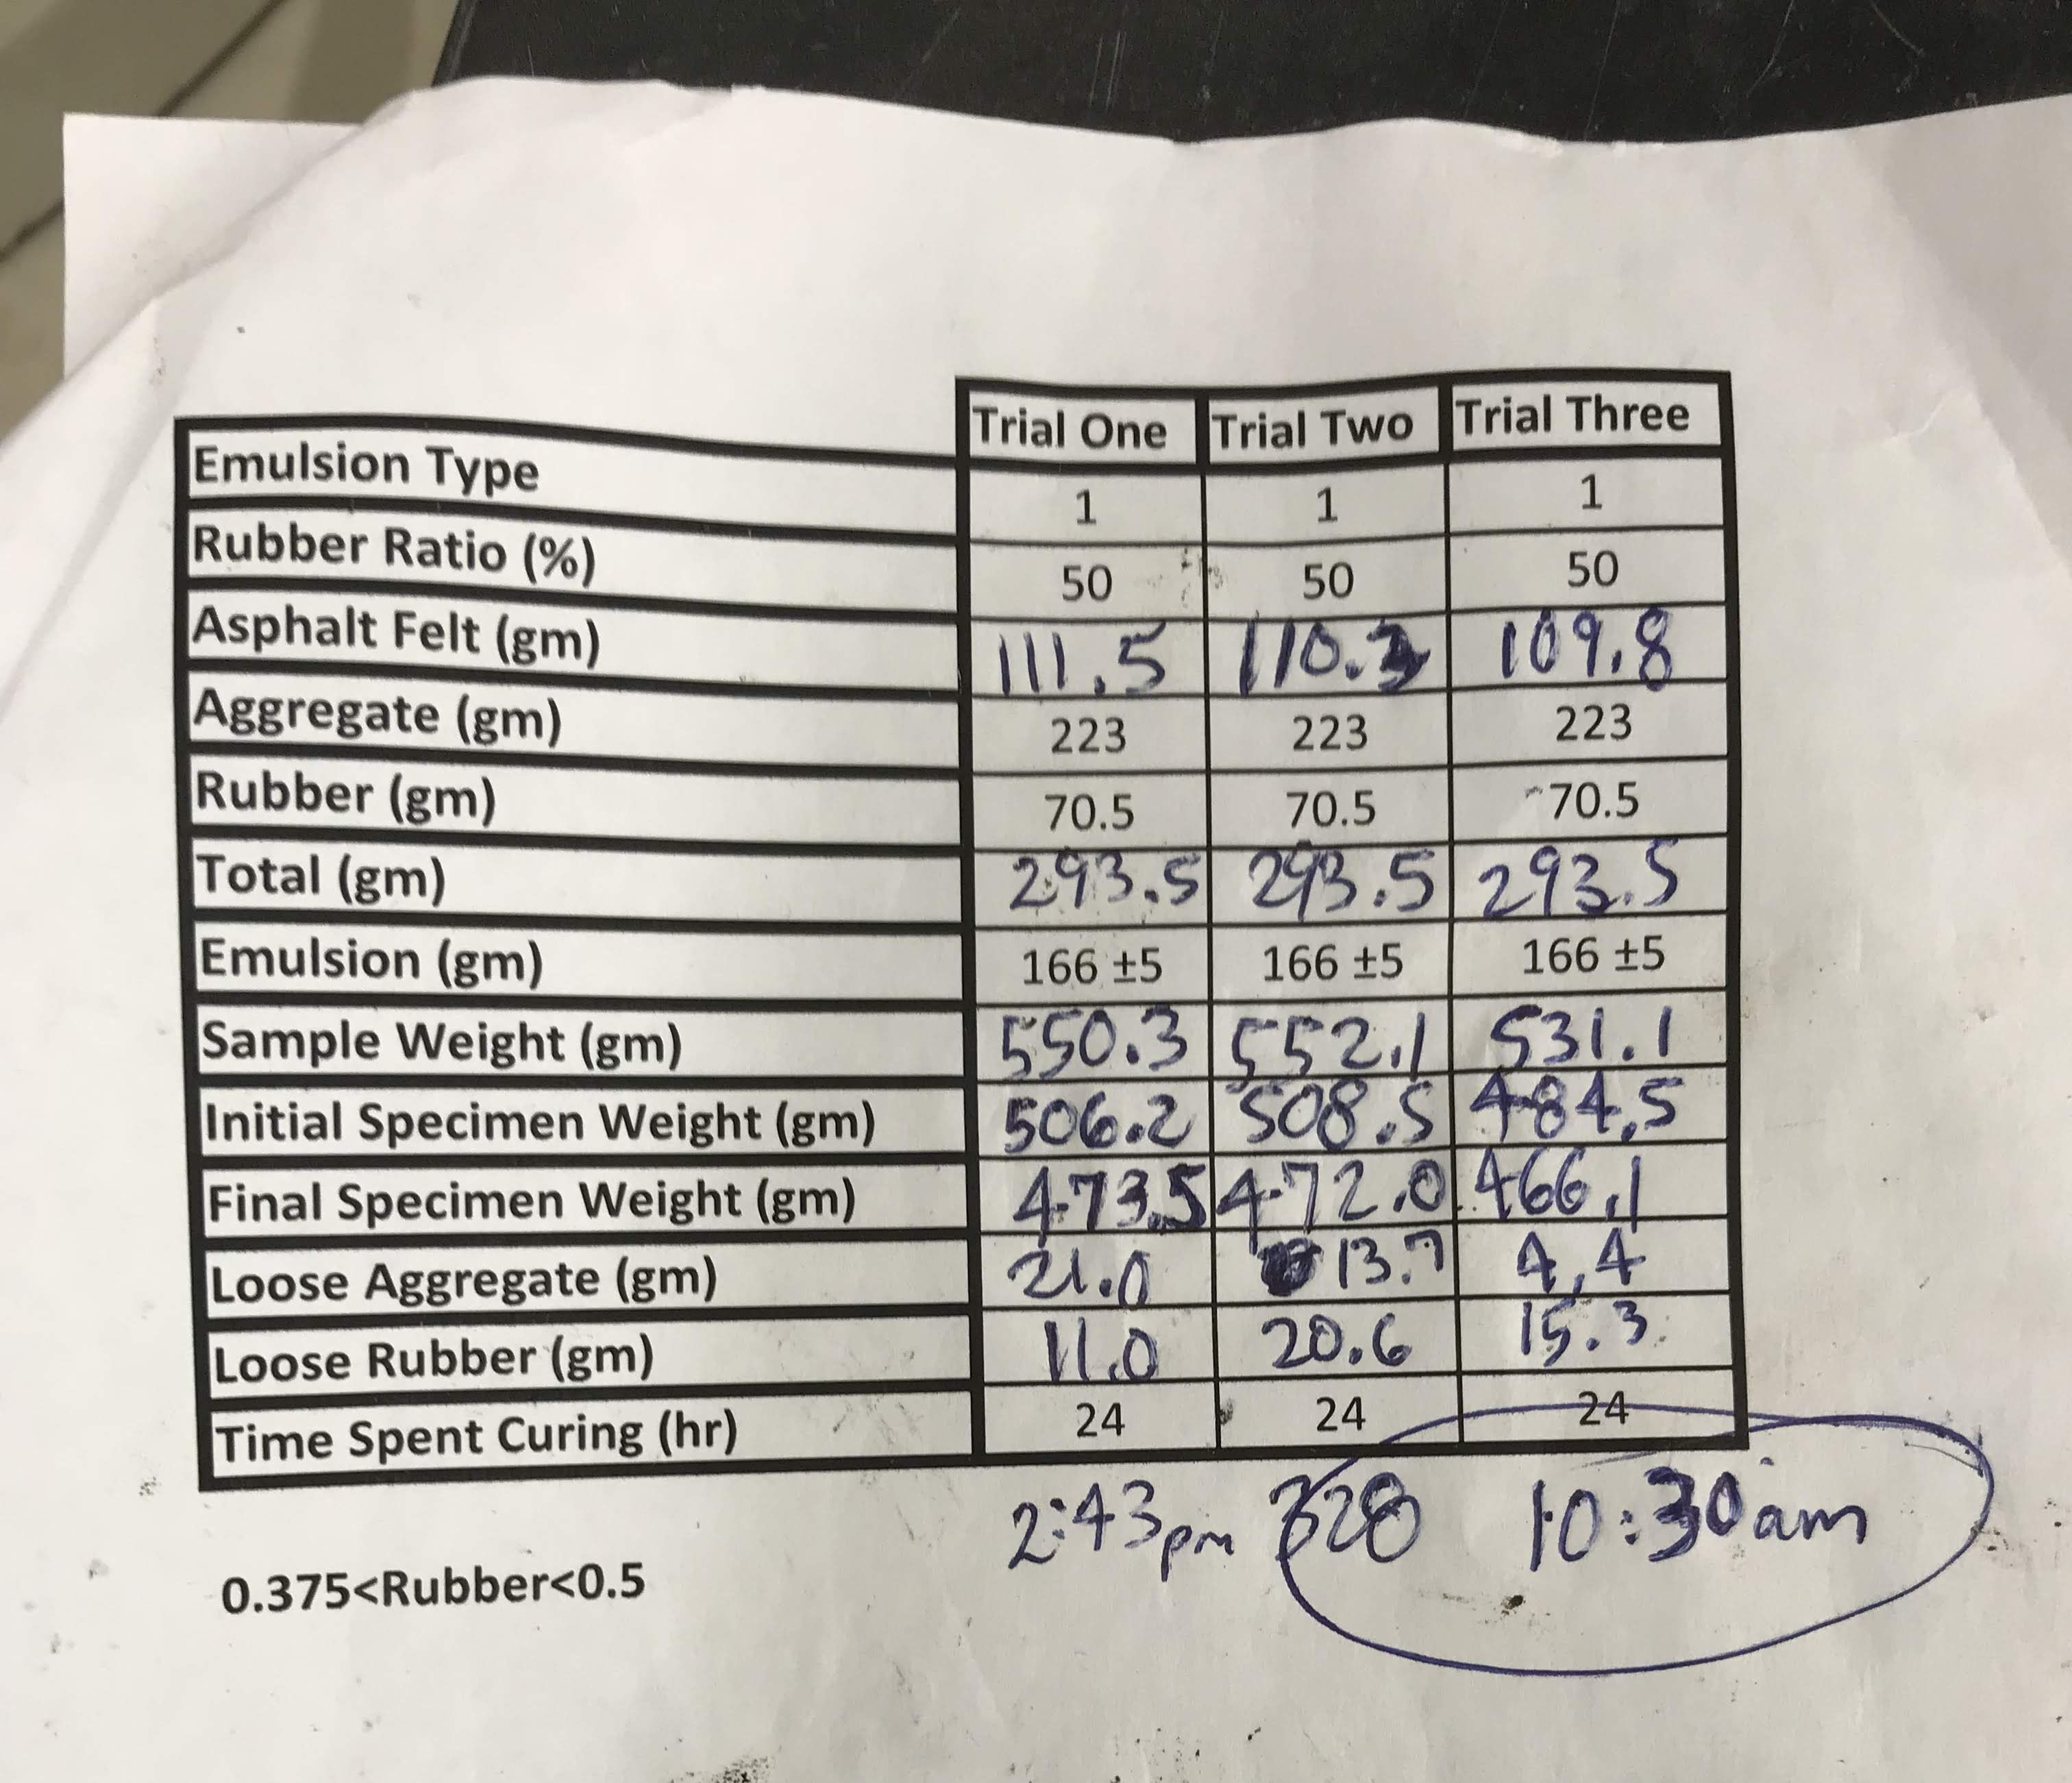 Trial One Trial Two Trial Three
Emulsion Type 1 1 1
Rubber Ratio (%) 50 50 50
Asphalt Felt (gm) 111.5 109.8
Aggregate (gm) 223 223 223
Rubber (gm) 70.5 70.5 70.5
Total (gm) 293.5 293.5 293.5
Emulsion (gm) 166 ±5 166 ±5 166 ±5
Sample Weight (gm) 550.3 552.1 531.1
Initial Specimen Weight (gm) 506.2 508.5 484.5
Final Specimen Weight (gm) 473.5 472.0 466.1
Loose Aggregate (gm) 21.0 13.7 4.4
Loose Rubber (gm) 11.0 20.6 15.3
Time Spent Curing (hr) 24 24 24
2:43pm 328 10:30am
0.375<Rubber<0.5